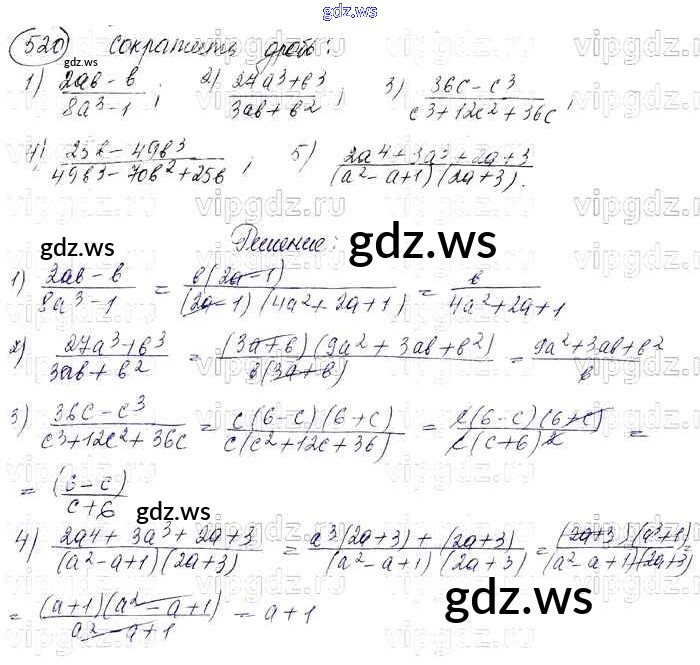 gdz.ws
520 Сократить дробь:
1) (2ab - b)/(8a³ - 1); 2) (27a³ + b³)/(3ab + b²); 3) (36c - c³)/(c³ + 12c² + 36c);
gdz.ws
4) (25b - 49b³)/(49b³ - 70b² + 25b); 5) (2a⁴ + 3a³ + 2a + 3)/((a² - a + 1)(2a + 3)).
Решение:
gdz.ws gdz.ws
1) (2ab - b)/(8a³ - 1) = b(2a - 1)/((2a - 1)(4a² + 2a + 1)) = b/(4a² + 2a + 1)
2) (27a³ + b³)/(3ab + b²) = (3a + b)(9a² + 3ab + b²)/(b(3a + b)) = (9a² + 3ab + b²)/b
3) (36c - c³)/(c³ + 12c² + 36c) = c(6 - c)(6 + c)/(c(c² + 12c + 36)) = c(6 - c)(6 + c)/(c(c + 6)²) =
= (6 - c)/(c + 6)
gdz.ws
4) (2a⁴ + 3a³ + 2a + 3)/((a² - a + 1)(2a + 3)) = (a³(2a + 3) + (2a + 3))/((a² - a + 1)(2a + 3)) = (2a + 3)(a³ + 1)/((a² - a + 1)(2a + 3)) =
= (a + 1)(a² - a + 1)/(a² - a + 1) = a + 1
gdz.ws
gdz.ws